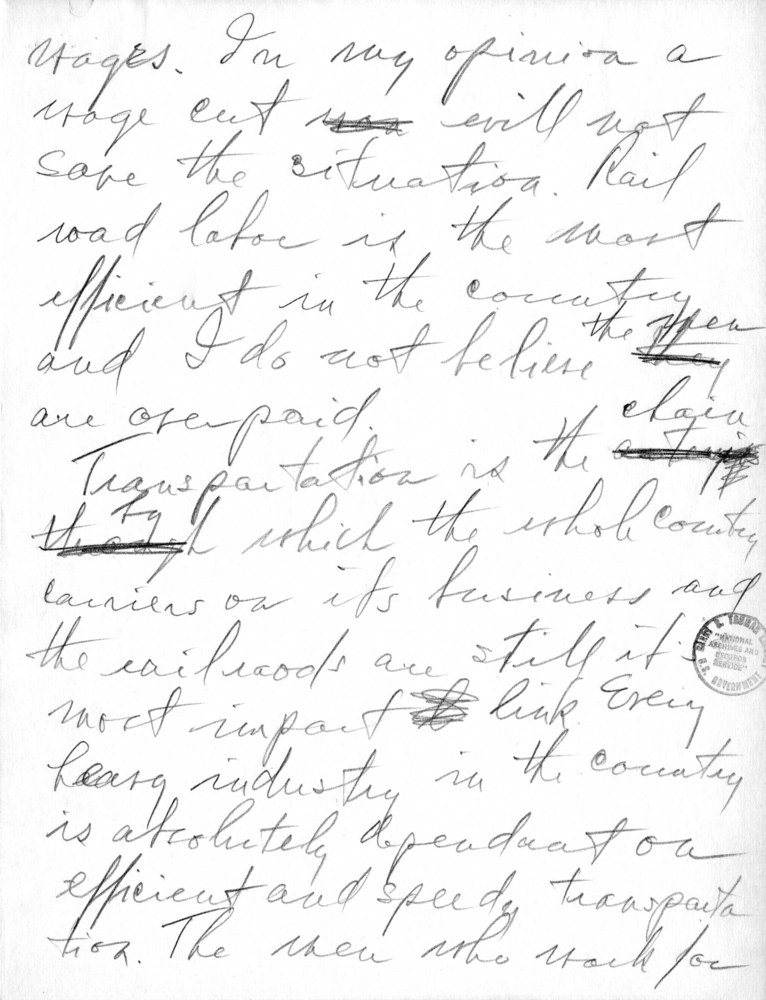 wages. In my opinion a
wage cut will not
save the situation. Rail
road labor is the most
efficient in the country
and I do not believe the men they
are overpaid.
Transportation is the chain
by through which the whole country
carriers on its business and
the railroads are still it's
most import link. Every
heavy industry in the country
is absolutely dependant on
efficient and speedy transporta
tion. The men who work for
HARRY S. TRUMAN
"NATIONAL
ARCHIVES AND
RECORDS
SERVICE"
U.S. GOVERNMENT